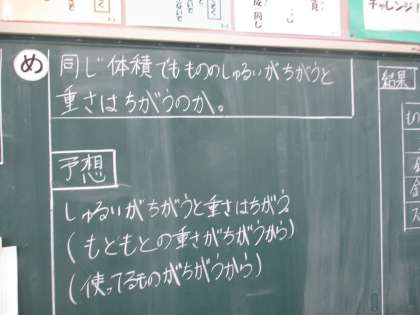 め
同じ体積でももののしゅるいがちがうと
重さはちがうのか。
予想
しゅるいがちがうと重さはちがう。
(もともとの重さがちがうから)
(使ってるものがちがうから)
結果
チャレンジ!